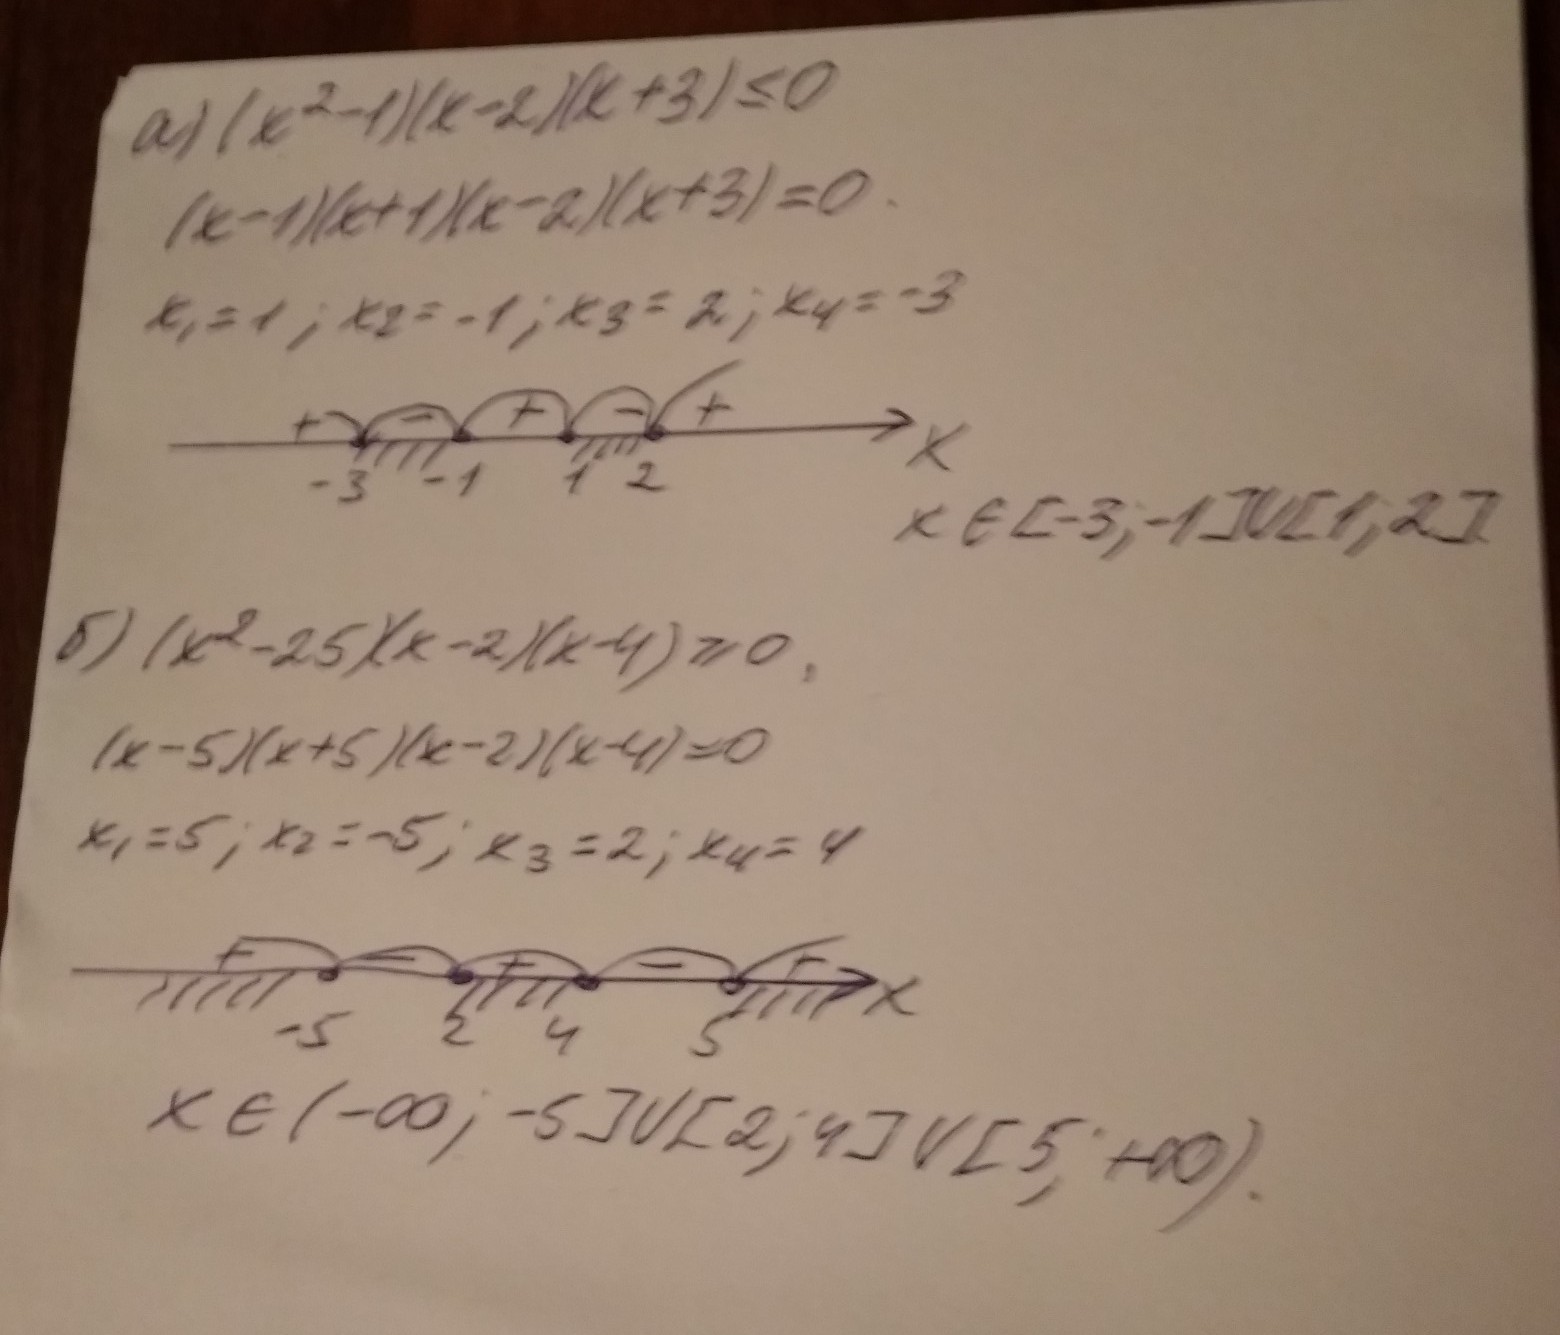 а) (x²-1)(x-2)(x+3)≤0
(x-1)(x+1)(x-2)(x+3)=0.
x₁=1; x₂=-1; x₃=2; x₄=-3
+ - + - +
-3 -1 1 2 x
x∈[-3;-1]∪[1;2]
б) (x²-25)(x-2)(x-4)≥0,
(x-5)(x+5)(x-2)(x-4)=0
x₁=5; x₂=-5; x₃=2; x₄=4
+ - + - +
-5 2 4 5 x
x∈(-∞;-5]∪[2;4]∪[5;+∞).